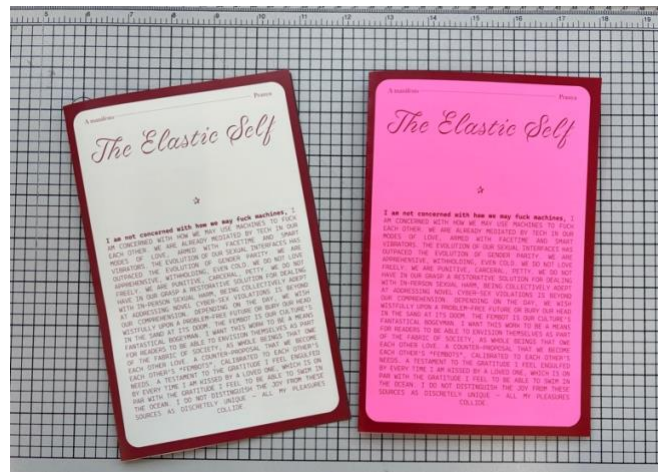 5 6 7 8 9 10 11 12 13 14 15 16 17 18 19
A manifesto Praxeca
The Elastic Self
I am not concerned with how we may fuck machines, I
AM CONCERNED WITH HOW WE MAY USE MACHINES TO FUCK
EACH OTHER. WE ARE ALREADY MEDIATED BY TECH IN OUR
MODES OF LOVE, ARMED WITH FACETIME AND SMART
VIBRATORS. THE EVOLUTION OF OUR SEXUAL INTERFACES HAS
OUTPACED THE EVOLUTION OF GENDER PARITY. WE ARE
APPREHENSIVE, WITHHOLDING, EVEN COLD. WE DO NOT LOVE
FREELY. WE ARE PUNITIVE, CARCERAL, PETTY. WE DO NOT
HAVE IN OUR GRASP A RESTORATIVE SOLUTION FOR DEALING
WITH IN-PERSON SEXUAL HARM, BEING COLLECTIVELY ADEPT
AT ADDRESSING NOVEL CYBER-SEX VIOLATIONS IS BEYOND
OUR COMPREHENSION. DEPENDING ON THE DAY, WE WISH
WISTFULLY UPON A PROBLEM-FREE FUTURE OR BURY OUR HEAD
IN THE SAND AT ITS DOOM. THE FEMBOT IS OUR CULTURE'S
FANTASTICAL BOGEYMAN. I WANT THIS WORK TO BE A MEANS
FOR READERS TO BE ABLE TO ENVISION THEMSELVES AS PART
OF THE FABRIC OF SOCIETY, AS WHOLE BEINGS THAT OWE
EACH OTHER LOVE. A COUNTER-PROPOSAL THAT WE BECOME
EACH OTHER'S "FEMBOTS", CALIBRATED TO EACH OTHER'S
NEEDS. A TESTAMENT TO THE GRATITUDE I FEEL ENGULFED
BY EVERY TIME I AM KISSED BY A LOVED ONE, WHICH IS ON
PAR WITH THE GRATITUDE I FEEL TO BE ABLE TO SWIM IN
THE OCEAN. I DO NOT DISTINGUISH THE JOY FROM THESE
SOURCES AS DISCRETELY UNIQUE — ALL MY PLEASURES
COLLIDE.
A manifesto
The Elastic Self
I am not concerned with how we may fuck machines, I
AM CONCERNED WITH HOW WE MAY USE MACHINES TO FUCK
EACH OTHER. WE ARE ALREADY MEDIATED BY TECH IN OUR
MODES OF LOVE, ARMED WITH FACETIME AND SMART
VIBRATORS. THE EVOLUTION OF OUR SEXUAL INTERFACES HAS
OUTPACED THE EVOLUTION OF GENDER PARITY. WE ARE
APPREHENSIVE, WITHHOLDING, EVEN COLD. WE DO NOT LOVE
FREELY. WE ARE PUNITIVE, CARCERAL, PETTY. WE DO NOT
HAVE IN OUR GRASP A RESTORATIVE SOLUTION FOR DEALING
WITH IN-PERSON SEXUAL HARM, BEING COLLECTIVELY ADEPT
AT ADDRESSING NOVEL CYBER-SEX VIOLATIONS IS BEYOND
OUR COMPREHENSION. DEPENDING ON THE DAY, WE WISH
WISTFULLY UPON A PROBLEM-FREE FUTURE OR BURY OUR HEAD
IN THE SAND AT ITS DOOM. THE FEMBOT IS OUR CULTURE'S
FANTASTICAL BOGEYMAN. I WANT THIS WORK TO BE A MEANS
FOR READERS TO BE ABLE TO ENVISION THEMSELVES AS PART
OF THE FABRIC OF SOCIETY, AS WHOLE BEINGS THAT OWE
EACH OTHER LOVE. A COUNTER-PROPOSAL THAT WE BECOME
EACH OTHER'S "FEMBOTS", CALIBRATED TO EACH OTHER'S
NEEDS. A TESTAMENT TO THE GRATITUDE I FEEL ENGULFED
BY EVERY TIME I AM KISSED BY A LOVED ONE, WHICH IS ON
PAR WITH THE GRATITUDE I FEEL TO BE ABLE TO SWIM IN
THE OCEAN. I DO NOT DISTINGUISH THE JOY FROM THESE
SOURCES AS DISCRETELY UNIQUE — ALL MY PLEASURES
COLLIDE.